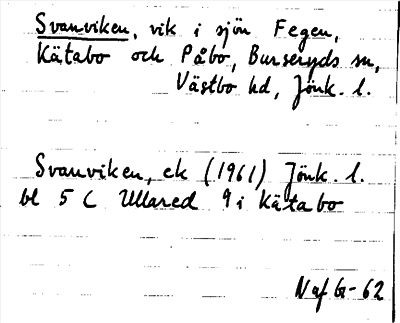 Svanviken, vik i sjön Fegen,
Kätabo och Påbo, Burseryds sn,
Västbo hd, Jönk. l.
Svanviken, ek (1961) Jönk. l.
bl 5 C Ullared 9 i Kätabo
Naf G-62